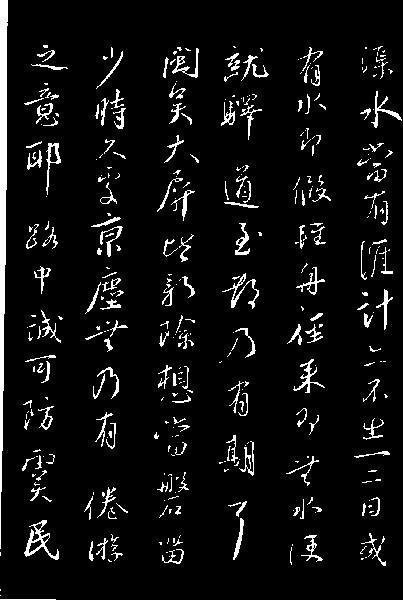 水當有涯計亦不出一二日或
有水即假輕舟徑来即無水便
就驛道至郡乃有期了
吴大屏新除想當磐留
少時久京塵無乃有倦游
之意耶路中誠可防虞民